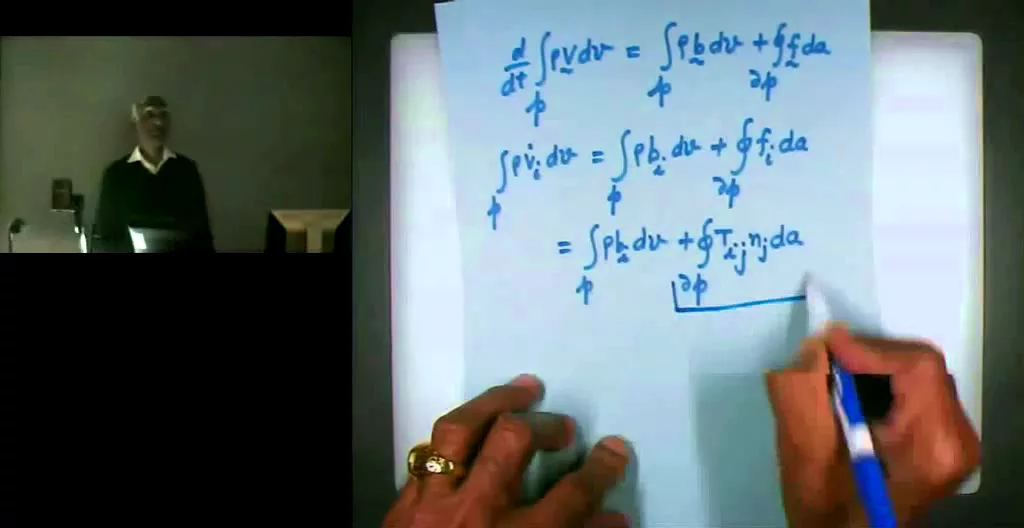 d/dt ∫_p ρv̰ dv = ∫_p ρb̰ dv + ∮_∂p f̰ da
∫_p ρv̇_i dv = ∫_p ρb_i dv + ∮_∂p f_i da
= ∫_p ρb_i dv + ∮_∂p T_ij n_j da